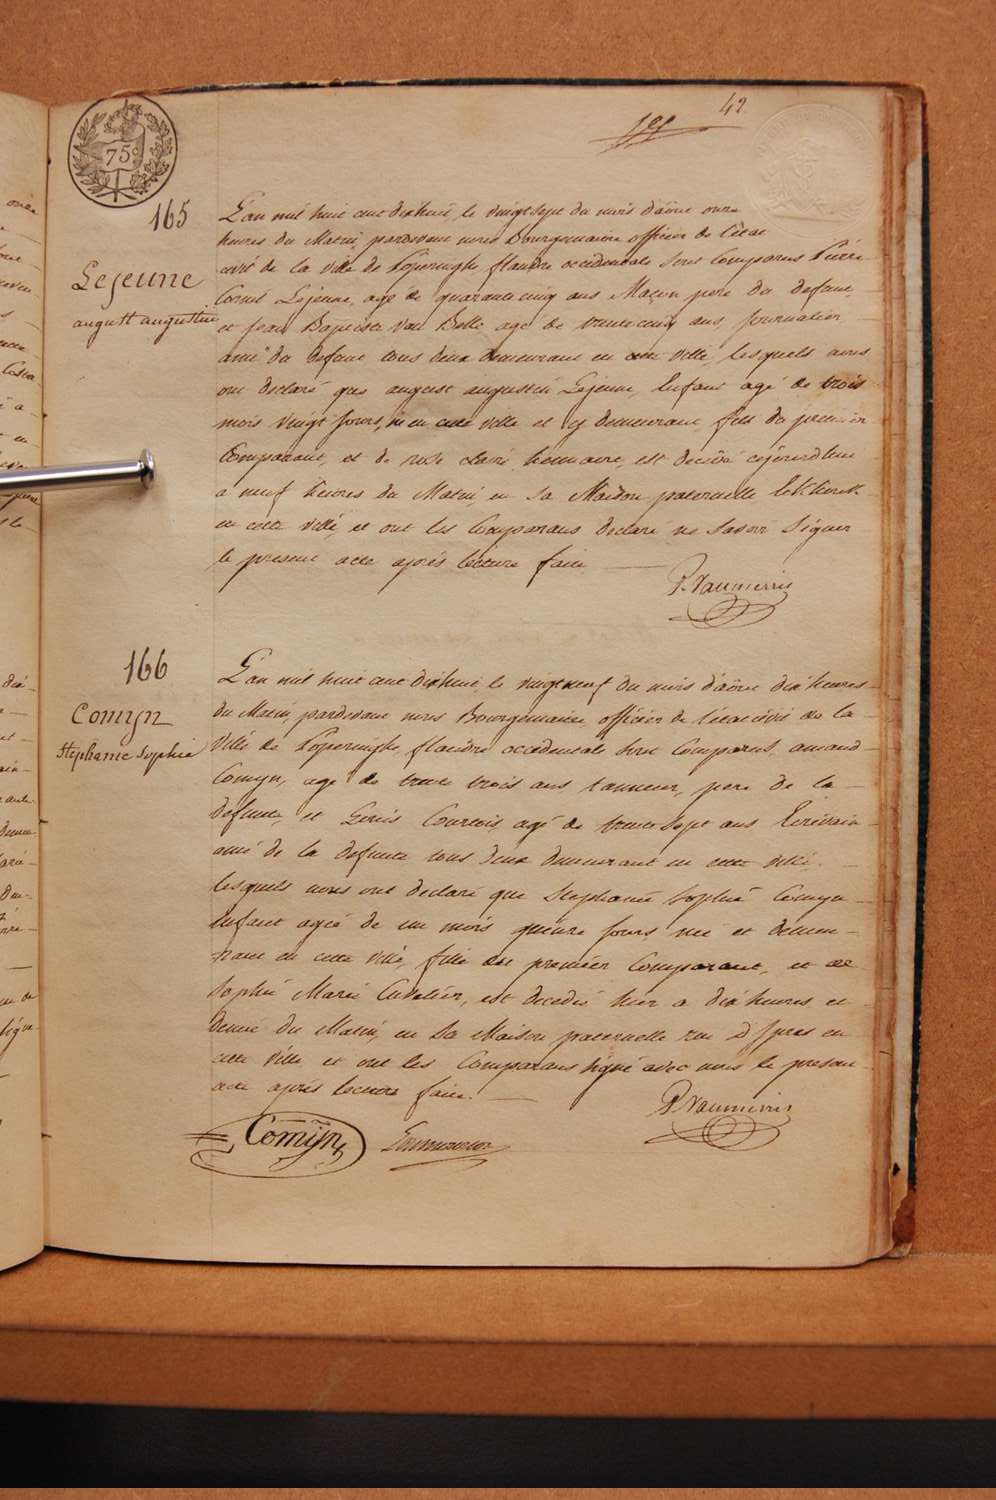 42
75c
165
Lejeune
august augustin
L'an mil huit cent dixhuit, le vingt sept du mois d'aout onze
heures du Matin, pardevant nous Bourgemaitre officier de l'etat
civil de la ville de Poperinghe, flandre occidentale sont Comparus Pierre
Cornil Lejeune, agé de quarante cinq ans Maçon pere du defunt,
et Jean Baptiste Van Belle agé de trente cinq ans, journalier
ami du defunt tous deux demeurant en cette ville, lesquels nous
ont declaré que august augustin Lejeune, Enfant agé de trois
mois vingt jours, né en cette ville et y demeurant fils du premier
Comparant, et de rose est decedé cejourd'hui
a neuf heures du Matin, en sa Maison paternelle
en cette ville, et ont les Comparans declaré ne savoir signer
le present acte après lecture faite
P. Vanmerris
166
Comyn
Stephanie Sophie
L'an mil huit cent dixhuit le vingt neuf du mois d'aout dix heures
du Matin, pardevant nous Bourgemaitre, officier de l'etat civil de la
Ville de Poperinghe, flandre occidentale sont Comparus, amand
Comyn, agé de trente trois ans tanneur, pere de la
defunte, et Louis Courtois agé de trente sept ans Ecrivain
ami de la defunte tous deux demeurant en cette ville,
lesquels nous ont declaré que Stephanie Sophie Comyn
Enfant agée de un mois quinze jours née et demeu-
rant en cette ville, fille du premier Comparant, et de
Sophie Marie Cuvelier, est decedée hier a dix heures et
demie du Matin, en sa Maison paternelle rue d'Ypres en
cette ville et ont les Comparans signé avec nous le present
acte après lecture faite.
P. Vanmerris
Comyn